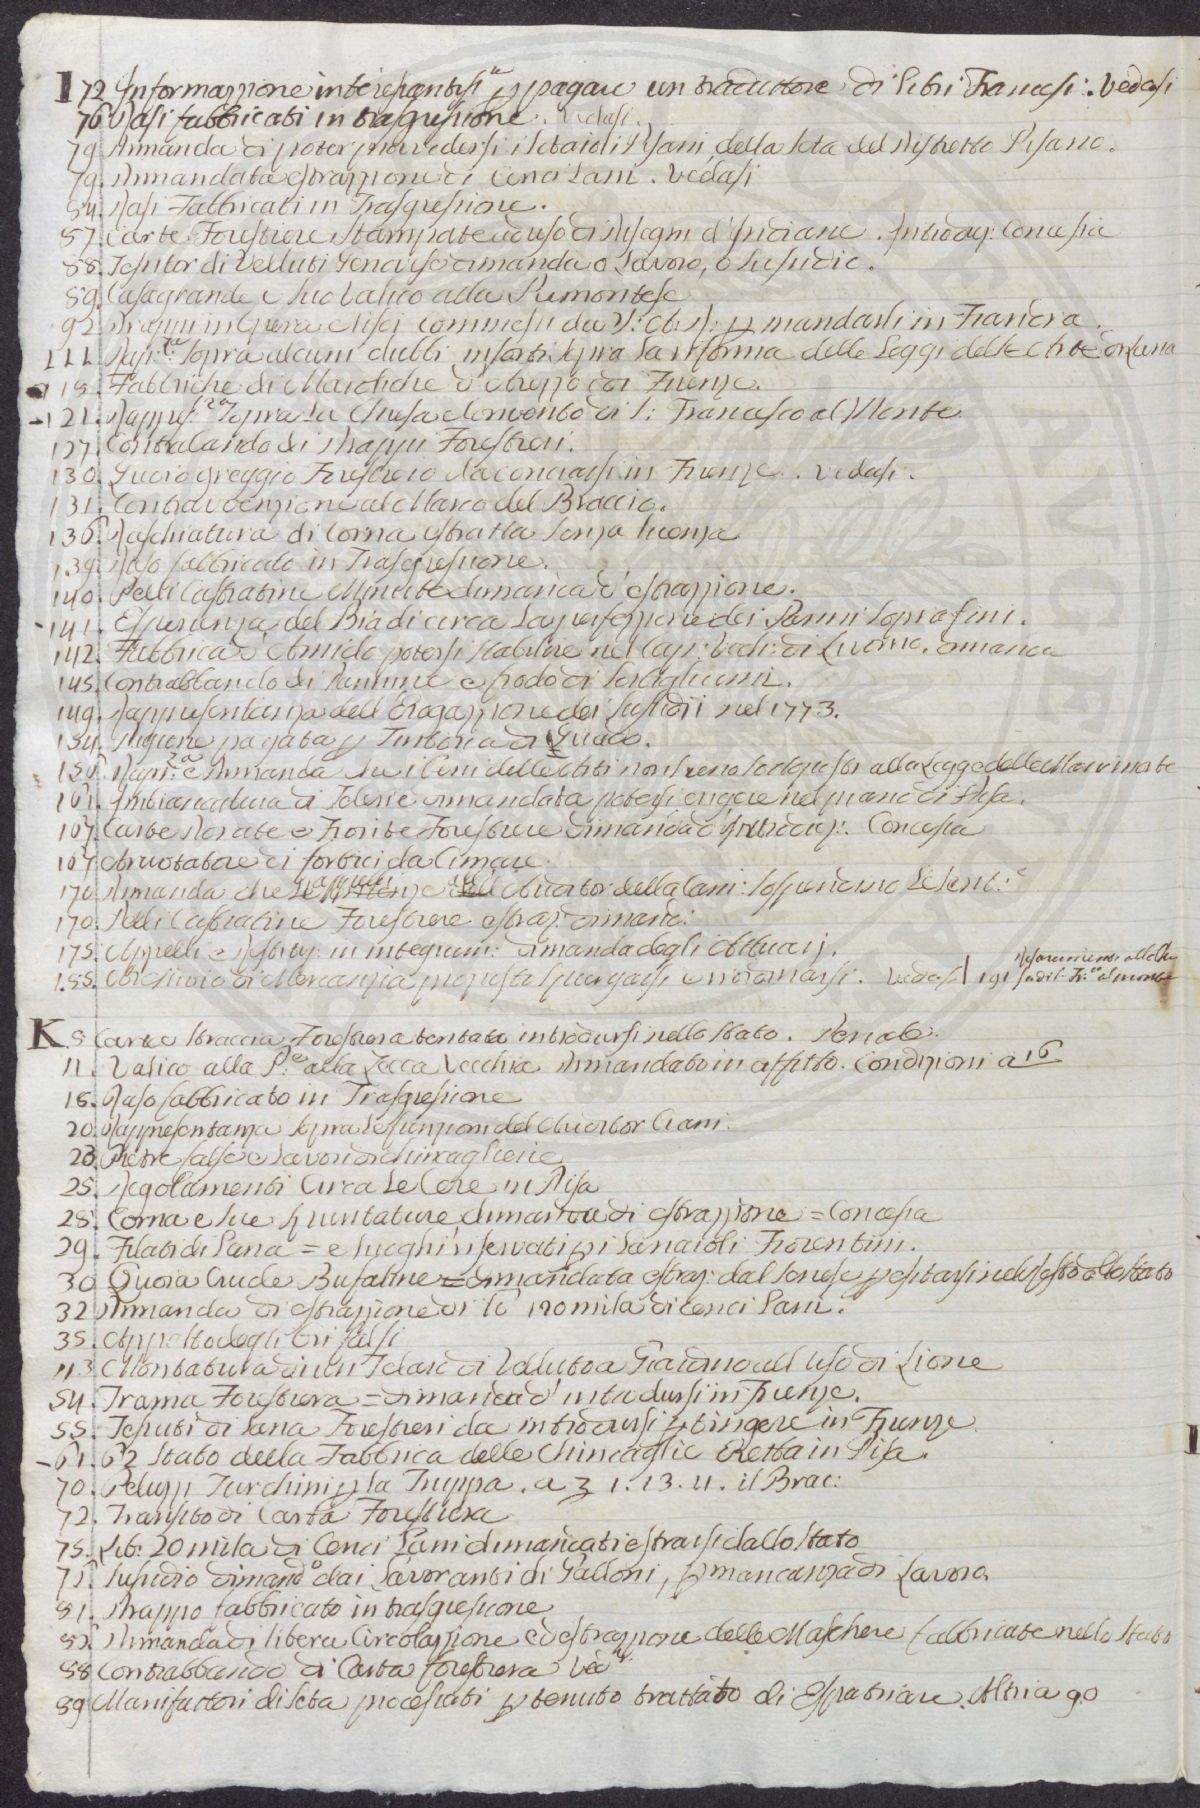 I 72. Informazzione interessantiss.a p pagare un traduttore di libri Francesi: Vedasi
76 Rasi fabbricati in trasgressione. Vedasi.
79 Dimanda di poter provedersi i Setaioli Pisani della Seta del Distretto Pisano.
79. Dimandata estrazzione di Cenci Lani. Vedasi
84. Rasi Fabbricati in Trasgressione.
87. Carte Forestiere stampate ad uso di disegni d'Indiane. Introduz: Concessa
88. Tessitor di Velluti dimanda o Lavoro, o Sussidio.
89. Casagrande e suo Valico alla Piemontese
92. Drappi in Opera e lisci commessi da S: A: R: p mandarsi in Francia.
111. Rapp:za sopra alcuni dubbi insorti sopra la riforma delle Leggi dell'Arte di Lana
118. Fabbriche di Maioliche d'Arezzo e di Firenze.
121. Rappres:za sopra la Chiesa e Convento di S: Francesco al Monte
127. Contrabando di Drappi Forestieri.
130. Quoio greggio Forestiero da conciarsi in Firenze. Vedasi.
131. Contravvenzione al Marco del Braccio.
136 Raschiatura di Corna estratta senza licenza
139. Raso fabbricato in Trasgressione.
140. Pelli Castratine Minute dimanda d'estrazzione.
141. Esperienza del Biadi circa la perfezzione dei Panni Soprafini.
142. Fabbrica d'Amido potersi stabilire nel di Livorno. dimanda
145. Contrabbando di e frodo di
149. Rappresentanza dell'Erogazzione dei Sussidii nel 1773.
154. Pigione pagata p Tintoria di Guado.
156. Rapp:za e Dimanda che i Beni delle Arti non sieno sottoposti alla Legge delle Mani morte
161. Imbiancatura di Telerie dimandata potersi erigere nel piano di Pisa.
167. Carte Dorate e Fiorite Forestiere dimanda d'Introduz:. Concessa
167 Arruotatore di forbici da Cimare
170 Dimanda che della Cam: sospendino le sent:e
170. Pelli Castratine Forestiere estraz: dimand:
175. Appelli e Restituz: in integrum: dimanda degli Attuarj.
188. di Mercanzia proposta spurgarsi e ridomarsi. Vedasi | 191
K 8 Carta Straccia Forestiera tentata introdursi nello Stato. Penale.
11. Valico alla P:e alla Zecca Vecchia Dimandato in affitto. Condizioni a 16
18. Raso fabbricato in Trasgressione
20 Rappresentanza sopra le funzioni dell'Auditor
23 Pietre false e Lavori di chincaglierie
25. Regolamenti Circa le Cere in Pisa
28. Corna e sue spuntature dimanda di estrazzione = Concessa
29. Filati di Lana = e luoghi riservati p i Lanaioli Fiorentini.
30 Quoia Crude Bufaline = dimandata estraz: dal Senese p esitarsi nel resto dello Stato
32 Dimanda di estrazzione di lb 120 mila di cenci Lani.
35. Appalto degli Ori falsi
43 Montatura di un Telare di Velluto a Giardino all'uso di Lione
54. Trama Forestiera = dimanda d'introdursi in Firenze.
55. Tessuti di Lana Forestieri da introdursi p tingere in Firenze
61. 62 Stato della Fabbrica delle Chincaglie Eretta in Pisa.
70. Peluzzi Turchini p la Truppa. a 1. 13. 4. il Brac:
72. Transito di Carta Forestiera
75. Lib: 20 mila di Cenci Lani dimandati estrarsi dallo Stato
71. Sussidio dimand:o dai Lavoranti di Galloni, p mancanza di Lavoro.
81. Drappo fabbricato in trasgressione
85. Dimanda di libera Circolazzione ed estrazzione delle Maschere fabbricate nello Stato
88 Contrabbando di Carta forestiera Ved:i
89 Manifattori di Seta processati p tenuto trattato di Espatriare. Altri a 90